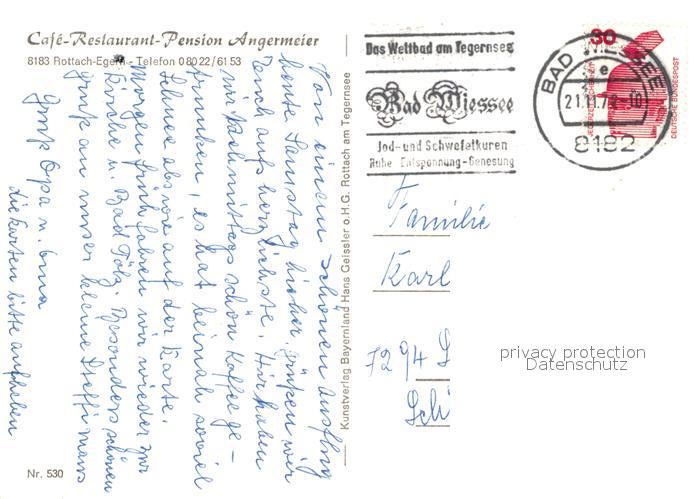 Café-Restaurant-Pension Angermeier
8183 Rottach-Egern - Telefon 08022/6153
Von einem schönen Ausflug
heute Samstag hierher, grüßen wir
Euch aufs herzlichste. Wir haben
nur Nachmittags schön Kaffee ge-
trunken, es hat beinah soviel
Schnee als wie auf der Karte.
Morgen früh fahren wir wieder zur
Kirche u. Bad Tölz. Besonders schönen
Gruß an unser kleine Steffi Maus
Gruß Opa u. Oma
die Karten bitte aufheben
Nr. 530
Kunstverlag Bayernland Hans Geissler o.H.G. Rottach am Tegernsee
Das Weltbad am Tegernsee
Bad Wiessee
Jod- und Schwefelkuren
Ruhe Entspannung-Genesung
BAD WIESSEE
e
21.11.7
8182
30
JEDERZEIT SICHERHEIT
DEUTSCHE BUNDESPOST
Familie
Karl
7294 S
Sch
privacy protection
Datenschutz